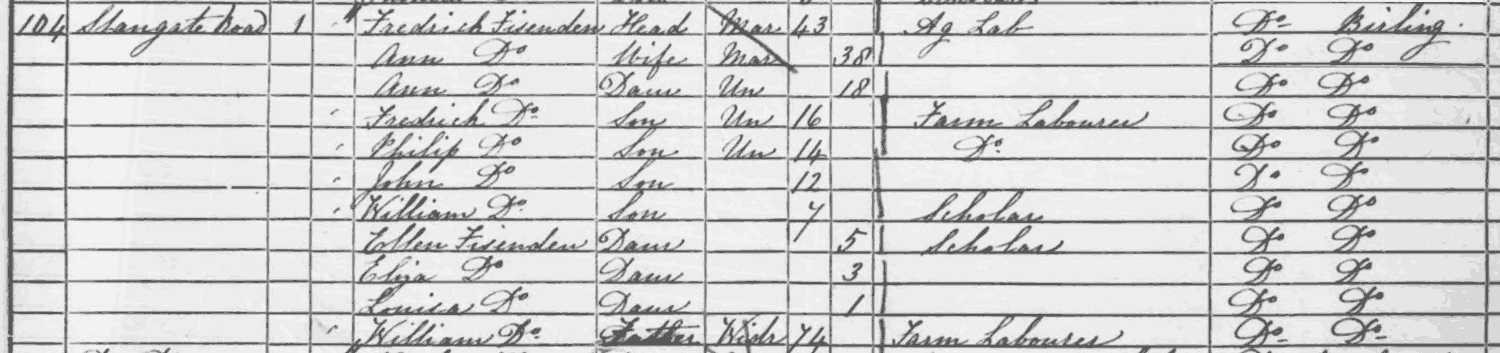 104 Stangate Road 1 Fredrick Fisenden Head Mar 43 Ag Lab Do Birling
Ann Do Wife Mar 38 Do Do
Ann Do Daur Un 18 Do Do
Fredrick Do Son Un 16 Farm Labourer Do Do
Philip Do Son Un 14 Do Do Do
John Do Son 12 Do Do
William Do Son 7 Scholar Do Do
Ellen Fisenden Daur 5 Scholar Do Do
Eliza Do Daur 3 Do Do
Louisa Do Daur 1 Do Do
William Do Father Widr 74 Farm Labourer Do Do